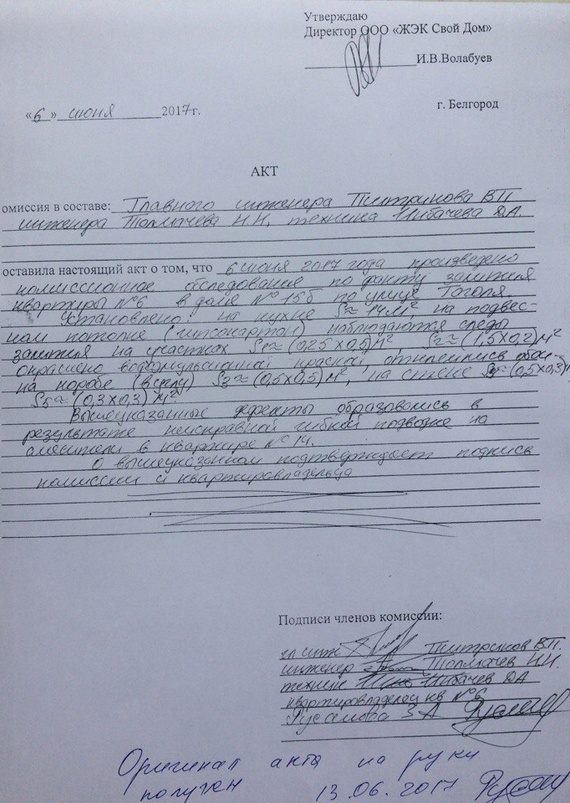 Утверждаю
Директор ООО «ЖЭК Свой Дом»
И.В.Волабуев
«6» июня 2017г.
г. Белгород
АКТ
омиссия в составе: Главного инженера Пинтринова В П
инженера Толмачева Н.Н. техника Чибачева Д.А.
оставила настоящий акт о том, что 6 июня 2017 года произведено
комиссионное обследование по факту залития
квартиры №6 в доме № 15б по улице Гоголя
Установлено: на кухне S≈14м² на подвес-
ном потолке (гипсокартон) наблюдаются следы
залития на участках S1≈(0,25х0,5)м² S2≈(1,5х0,2)м²
окрашено водоэмульсионной краской отклеились обои
на коробе (в углу) S3≈(0,5х0,5)м², на стене S4≈(0,5х0,3)
S5≈(0,3х0,3)м²
Вышеуказанные дефекты образовались в
результате неисправной гибкой подводке на
смесители в квартире № 14.
О вышеуказанном подтверждает подпись
комиссии и квартировладельца
Подписи членов комиссии:
гл инж Пинтринов В.П.
инженер Толмачев Н.Н.
техник Чибачев ДА
квартировладелец кв №6
З.А
Оригинал акта на руки
получен 13.06.2017